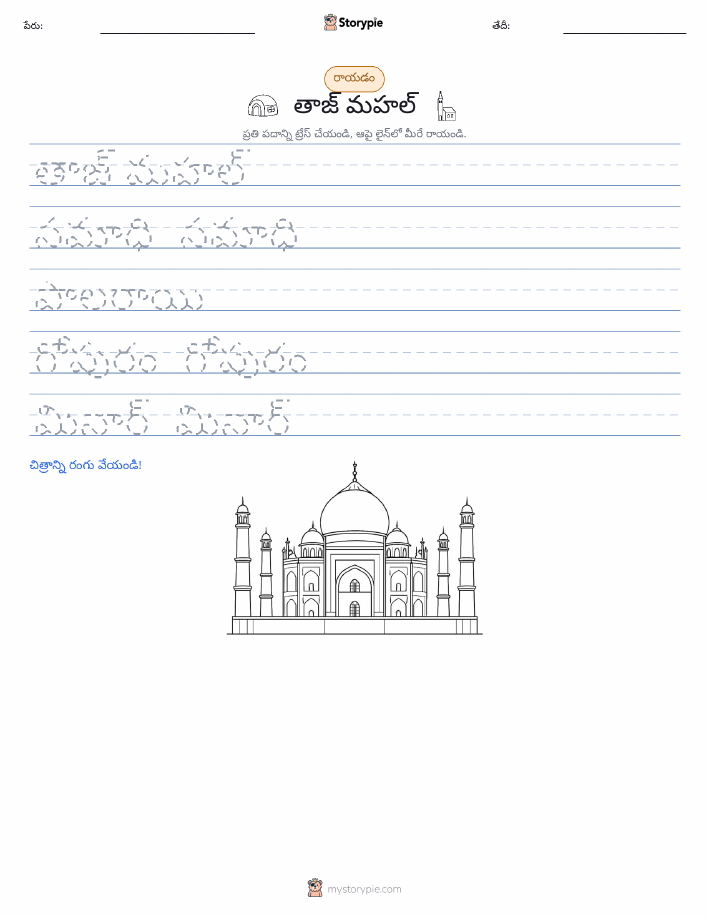 పేరు:
Storypie
తేదీ:
రాయడం
తాజ్ మహల్
ప్రతి పదాన్ని ట్రేస్ చేయండి, ఆపై లైన్‌లో మీరే రాయండి.
తాజ్ మహల్
సమాధి సమాధి
పాలరాయి
గోపురం గోపురం
మినార్ మినార్
చిత్రాన్ని రంగు వేయండి!
mystorypie.com